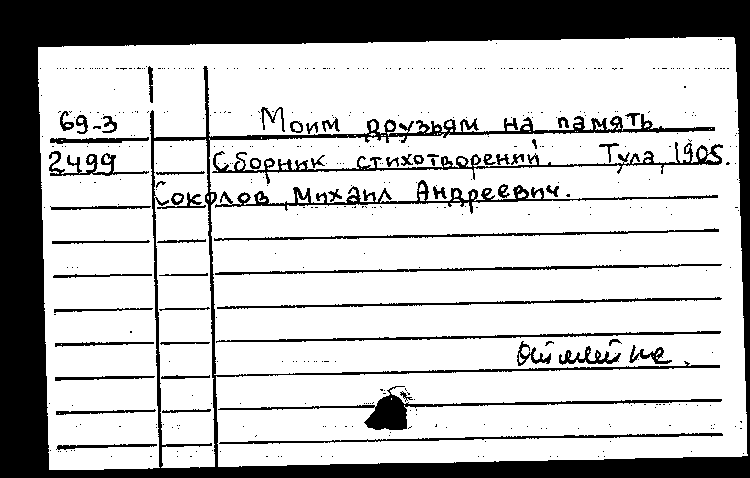 69-3 Моим друзьям на память.
2499 Сборник стихотворений. Тула, 1905.
Соколов, Михаил Андреевич.